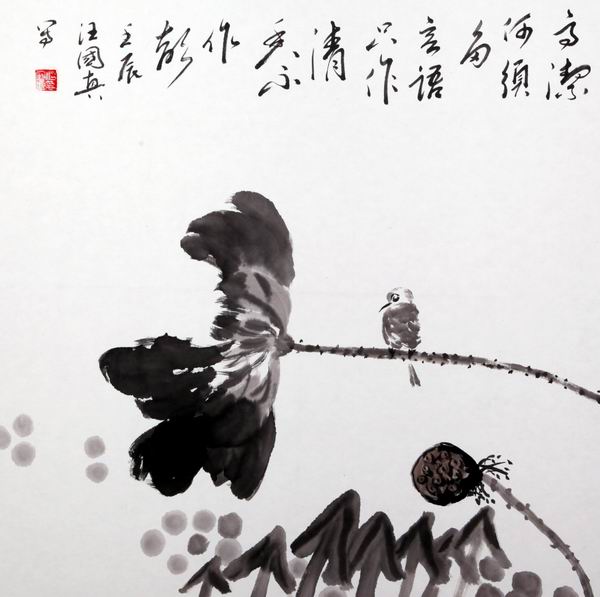 高潔
何須
多
言語
只作
清
香不
作
聲
壬辰
汪國真
寫